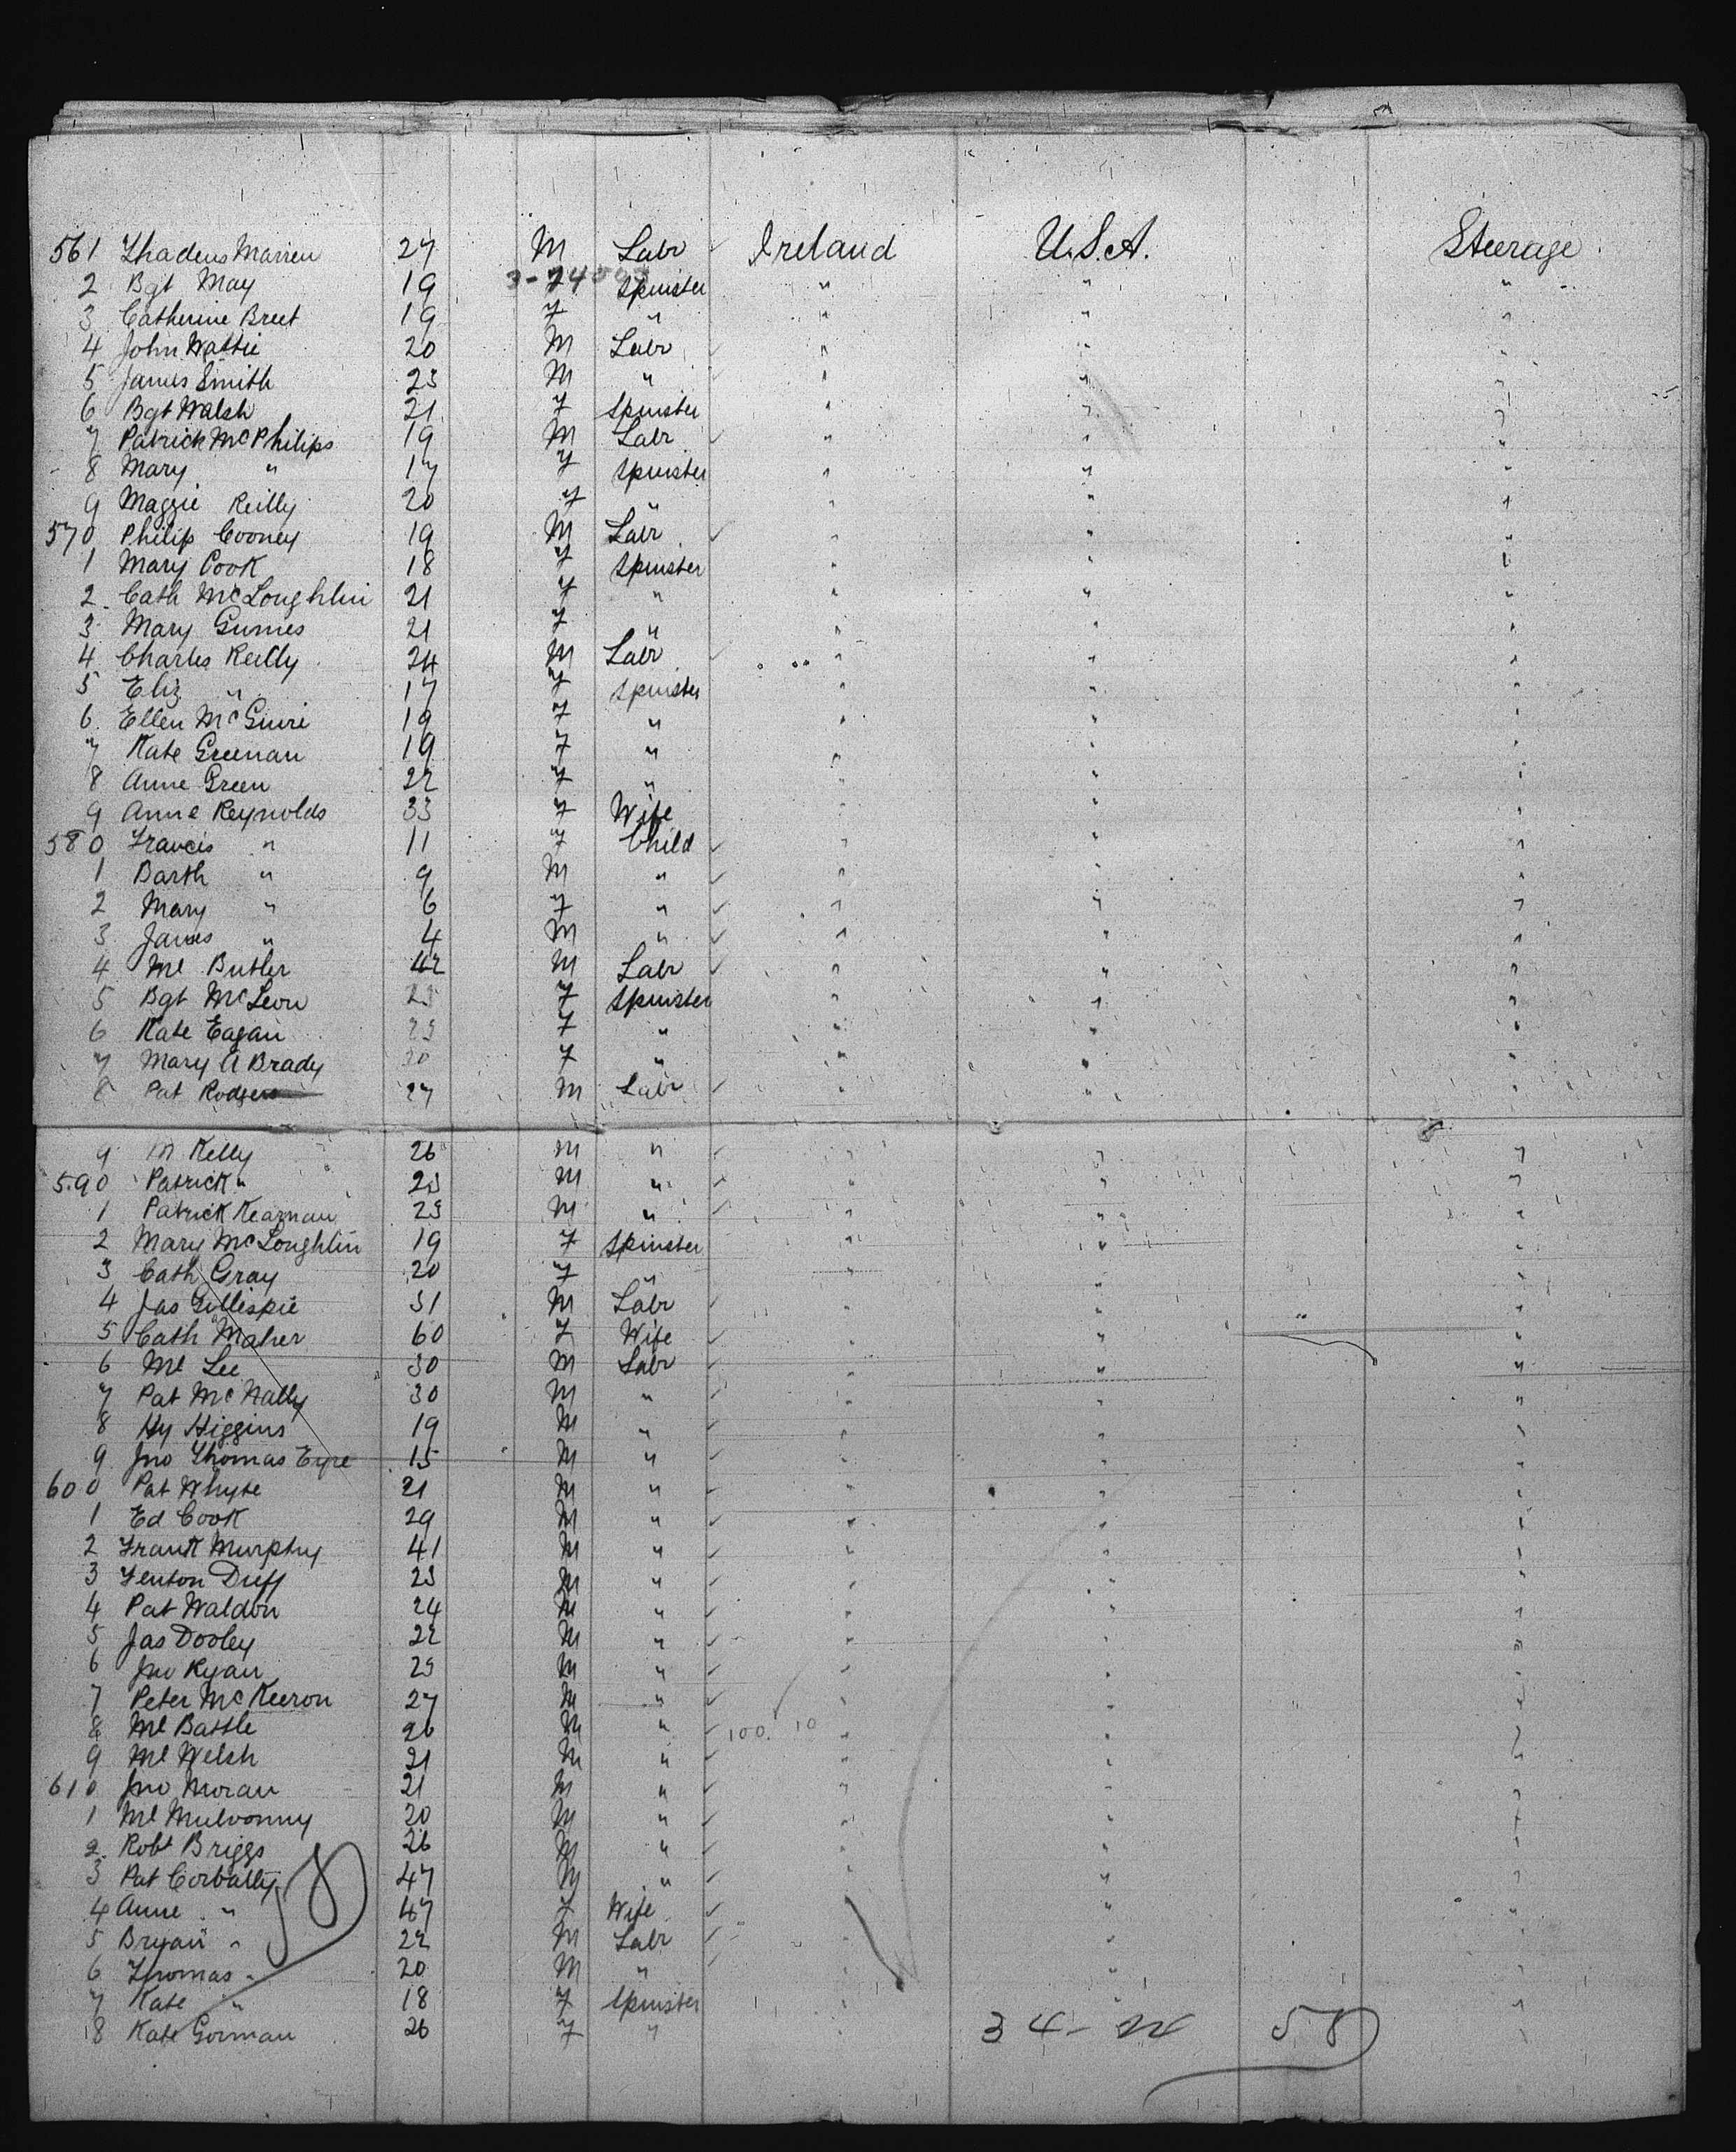 561 Thadeus Marren 27 M Labr Ireland U.S.A. Steerage
2 Bgt May 19 3-24595 Spinster " " "
3 Catherine Breet 19 F " " " "
4 John Wattie 20 M Labr " " "
5 James Smith 23 M " " " "
6 Bgt Walsh 21 F Spinster " " "
7 Patrick McPhilips 19 M Labr " " "
8 Mary " 17 F Spinster " " "
9 Maggie Reilly 20 F " " " "
570 Philip Cooney 19 M Labr " " "
1 Mary Cook 18 F Spinster " " "
2 Cath McLoughlin 21 F " " " "
3 Mary 21 F " " " "
4 Charles Reilly 24 M Labr " " "
5 Eliz " 17 F Spinster " " "
6 Ellen McGuire 19 F " " " "
7 Kate Greenan 19 F " " " "
8 Anne Green 22 F " " " "
9 Anne Reynolds 33 F Wife " " "
580 Francis " 11 F Child " " "
1 Barth " 9 M " " " "
2 Mary " 6 F " " " "
3 James " 4 M " " " "
4 Ml Butler 42 M Labr " " "
5 Bgt 23 F Spinster " " "
6 Kate Eagan 23 F " " " "
7 Mary A Brady 20 F " " " "
8 Pat Rodgers 27 M Labr " " "
9 M Kelly 26 M " " " "
590 Patrick " 23 M " " " "
1 Patrick Kearnan 23 M " " " "
2 Mary McLoughlin 19 F Spinster " " "
3 Cath Gray 20 F " " " "
4 Jas Gillispie 31 M Labr " " "
5 Cath Maher 60 F Wife " " "
6 Ml Lee 30 M Labr " " "
7 Pat McNally 30 M " " " "
8 Hy Higgins 19 M " " " "
9 Jno Thomas Eyre 15 M " " " "
600 Pat Whyte 21 M " " " "
1 Ed Cook 29 M " " " "
2 Frank Murphy 41 M " " " "
3 Fenton Duff 23 M " " " "
4 Pat Waldon 24 M " " " "
5 Jas Dooley 22 M " " " "
6 Jno Ryan 23 M " " " "
7 Peter McKeeron 27 M " " " "
8 Ml Battle 20 M " 100 10 " " "
9 Ml Welsh 21 M " " " "
610 Jno Moran 21 M " " " "
1 Ml Mulvonny 20 M " " " "
2 Robt Briggs 26 M " " " "
3 Pat Corbally 47 M " " " "
4 Anne " 47 F Wife " " "
5 Bryan " 22 M Labr " " "
6 Thomas " 20 M " " " "
7 Kate " 18 F Spinster " " "
8 Kate Gorman 26 F " " " "
58
34 - 24 58